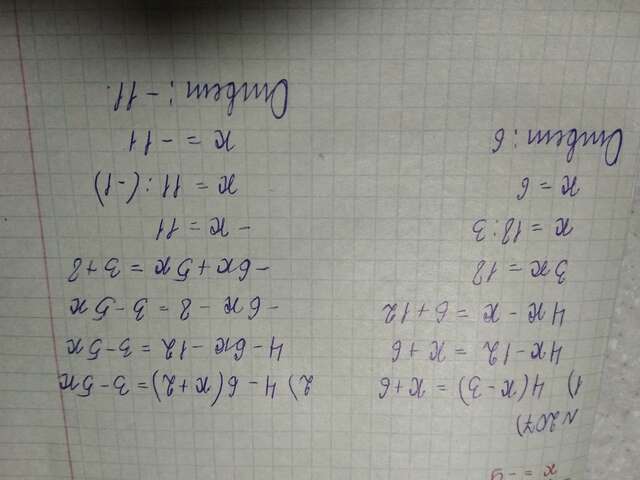 x = -9
№207)
1) 4(x-3) = x+6
4x-12 = x+6
4x-x = 6+12
3x = 18
x = 18:3
x = 6
Ответ: 6
2) 4-6(x+2)= 3-5x
4-6x-12 = 3-5x
-6x-8 = 3-5x
-6x+5x = 3+8
-x = 11
x = 11:(-1)
x = -11
Ответ: -11.